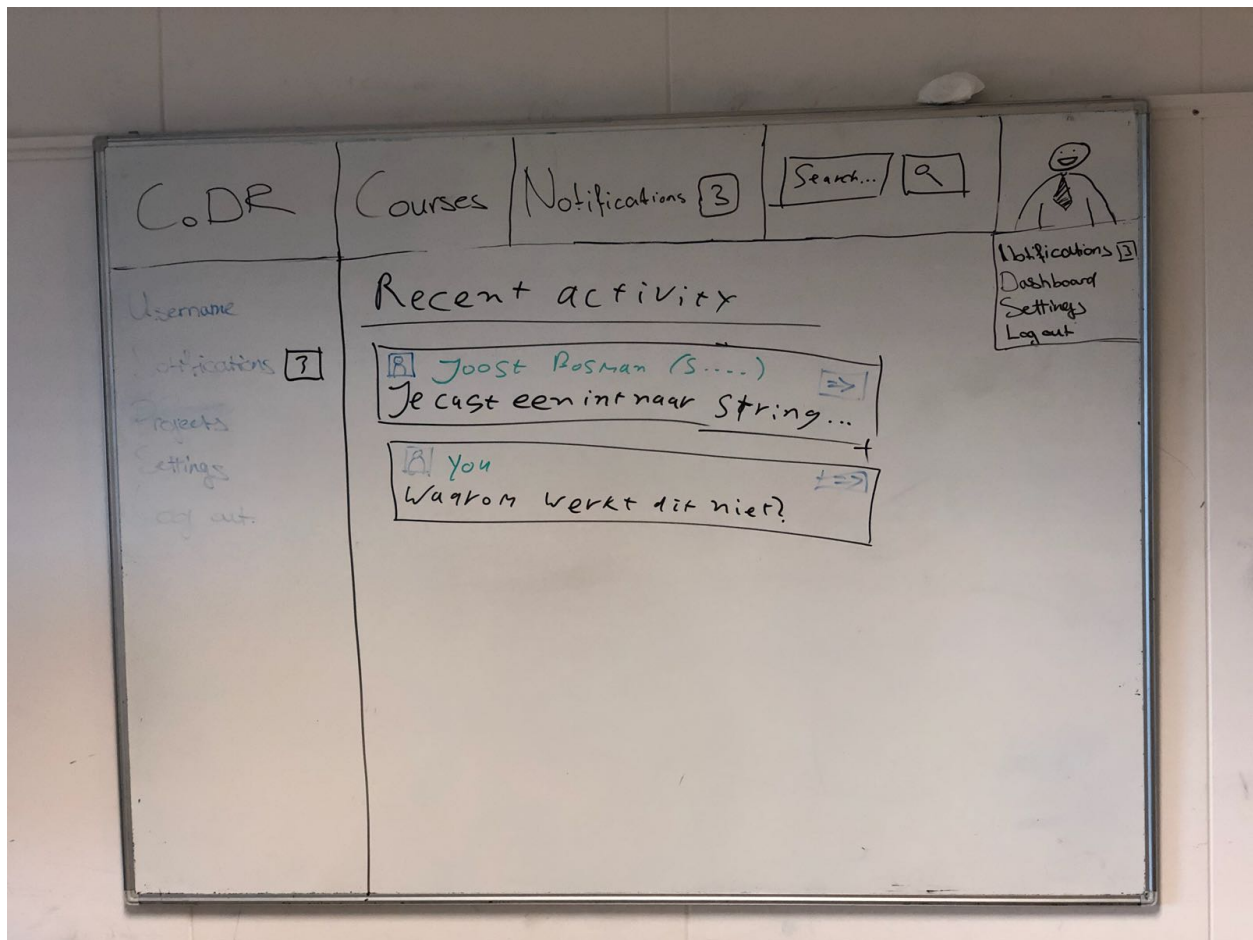 CoDR
Courses
Notifications 3
Search...
Notifications 3
Dashboard
Settings
Log out
Username
Notifications 3
Projects
Settings
Log out
Recent activity
Joost Bosman (S....)
=>
Je cast een int naar String...
You
+=>
Waarom werkt dit niet?